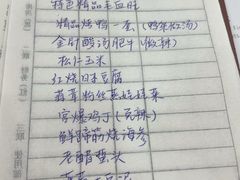 特色精品毛血旺
精品烤鸭一套(鸭架做汤)
金针酸汤肥牛(微辣)
松仁玉米
红烧日本豆腐
蒜蓉粉丝蒸娃娃菜
宫爆鸡丁(免辣)
鲜蹄筋烧海参
老醋蜇头